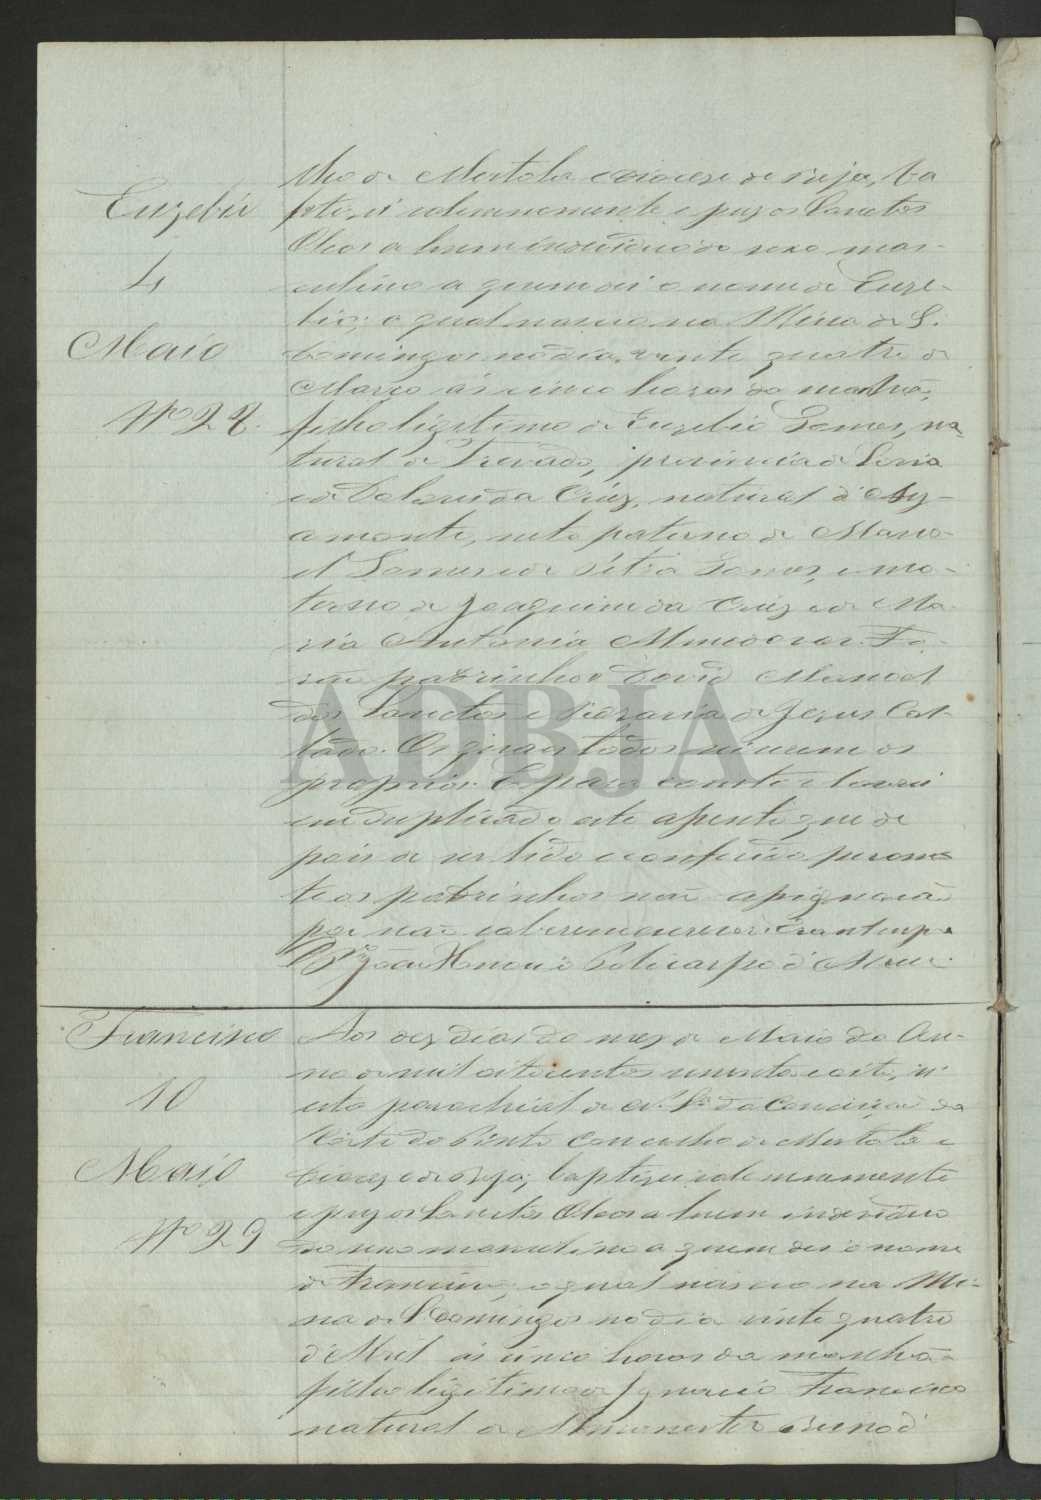 Euzebio
4
Maio
Nº 28.
lho de Mertola e diocese de Beja, ba
ptizei solemnemente e puz os Sanctos
Oleos a hum individuo do sexo mas-
culino a quem dei o nome de Euze-
bio; o qual nasceo na Mina de S.
Domingos no dia vinte quatro de
Março ás cinco horas da manhã,
filho legitimo de Euzebio Gomes, na-
tural de provincia de
e de da Cruz, natural d'Ay-
amonte, neto paterno de Mano-
el Gomes e de Gomes, e ma-
terno de Joaquim da Cruz e de Ma-
ria Antonia Fo-
rão padrinhos David Manoel
dos Sanctos e de Jesus
Os quaes todos os
proprios. E para constar lavrei
em duplicado este assento que de
pois de ser lido e conferido peran
te os padrinhos não assignarão
por não saberem escrever. Era ut supra
João Policarpo d'
Francisco
10
Maio
Nº 29
Aos dez dias do mez de Maio do An-
no de mil oitocentos e oito, n'
esta parochial de N. Sª da Conceição da
Corte do Pinto concelho de Mertola e
diocese de Beja; baptizei solemnemente
e puz os Sanctos Oleos a hum individuo
do sexo masculino a quem dei o nome
de Francisco; o qual nasceo na Mi-
na de S. Domingos no dia vinte quatro
d'Abril ás cinco horas da manhã
filho legitimo de Ignacio Francisco
natural de
ADBJA